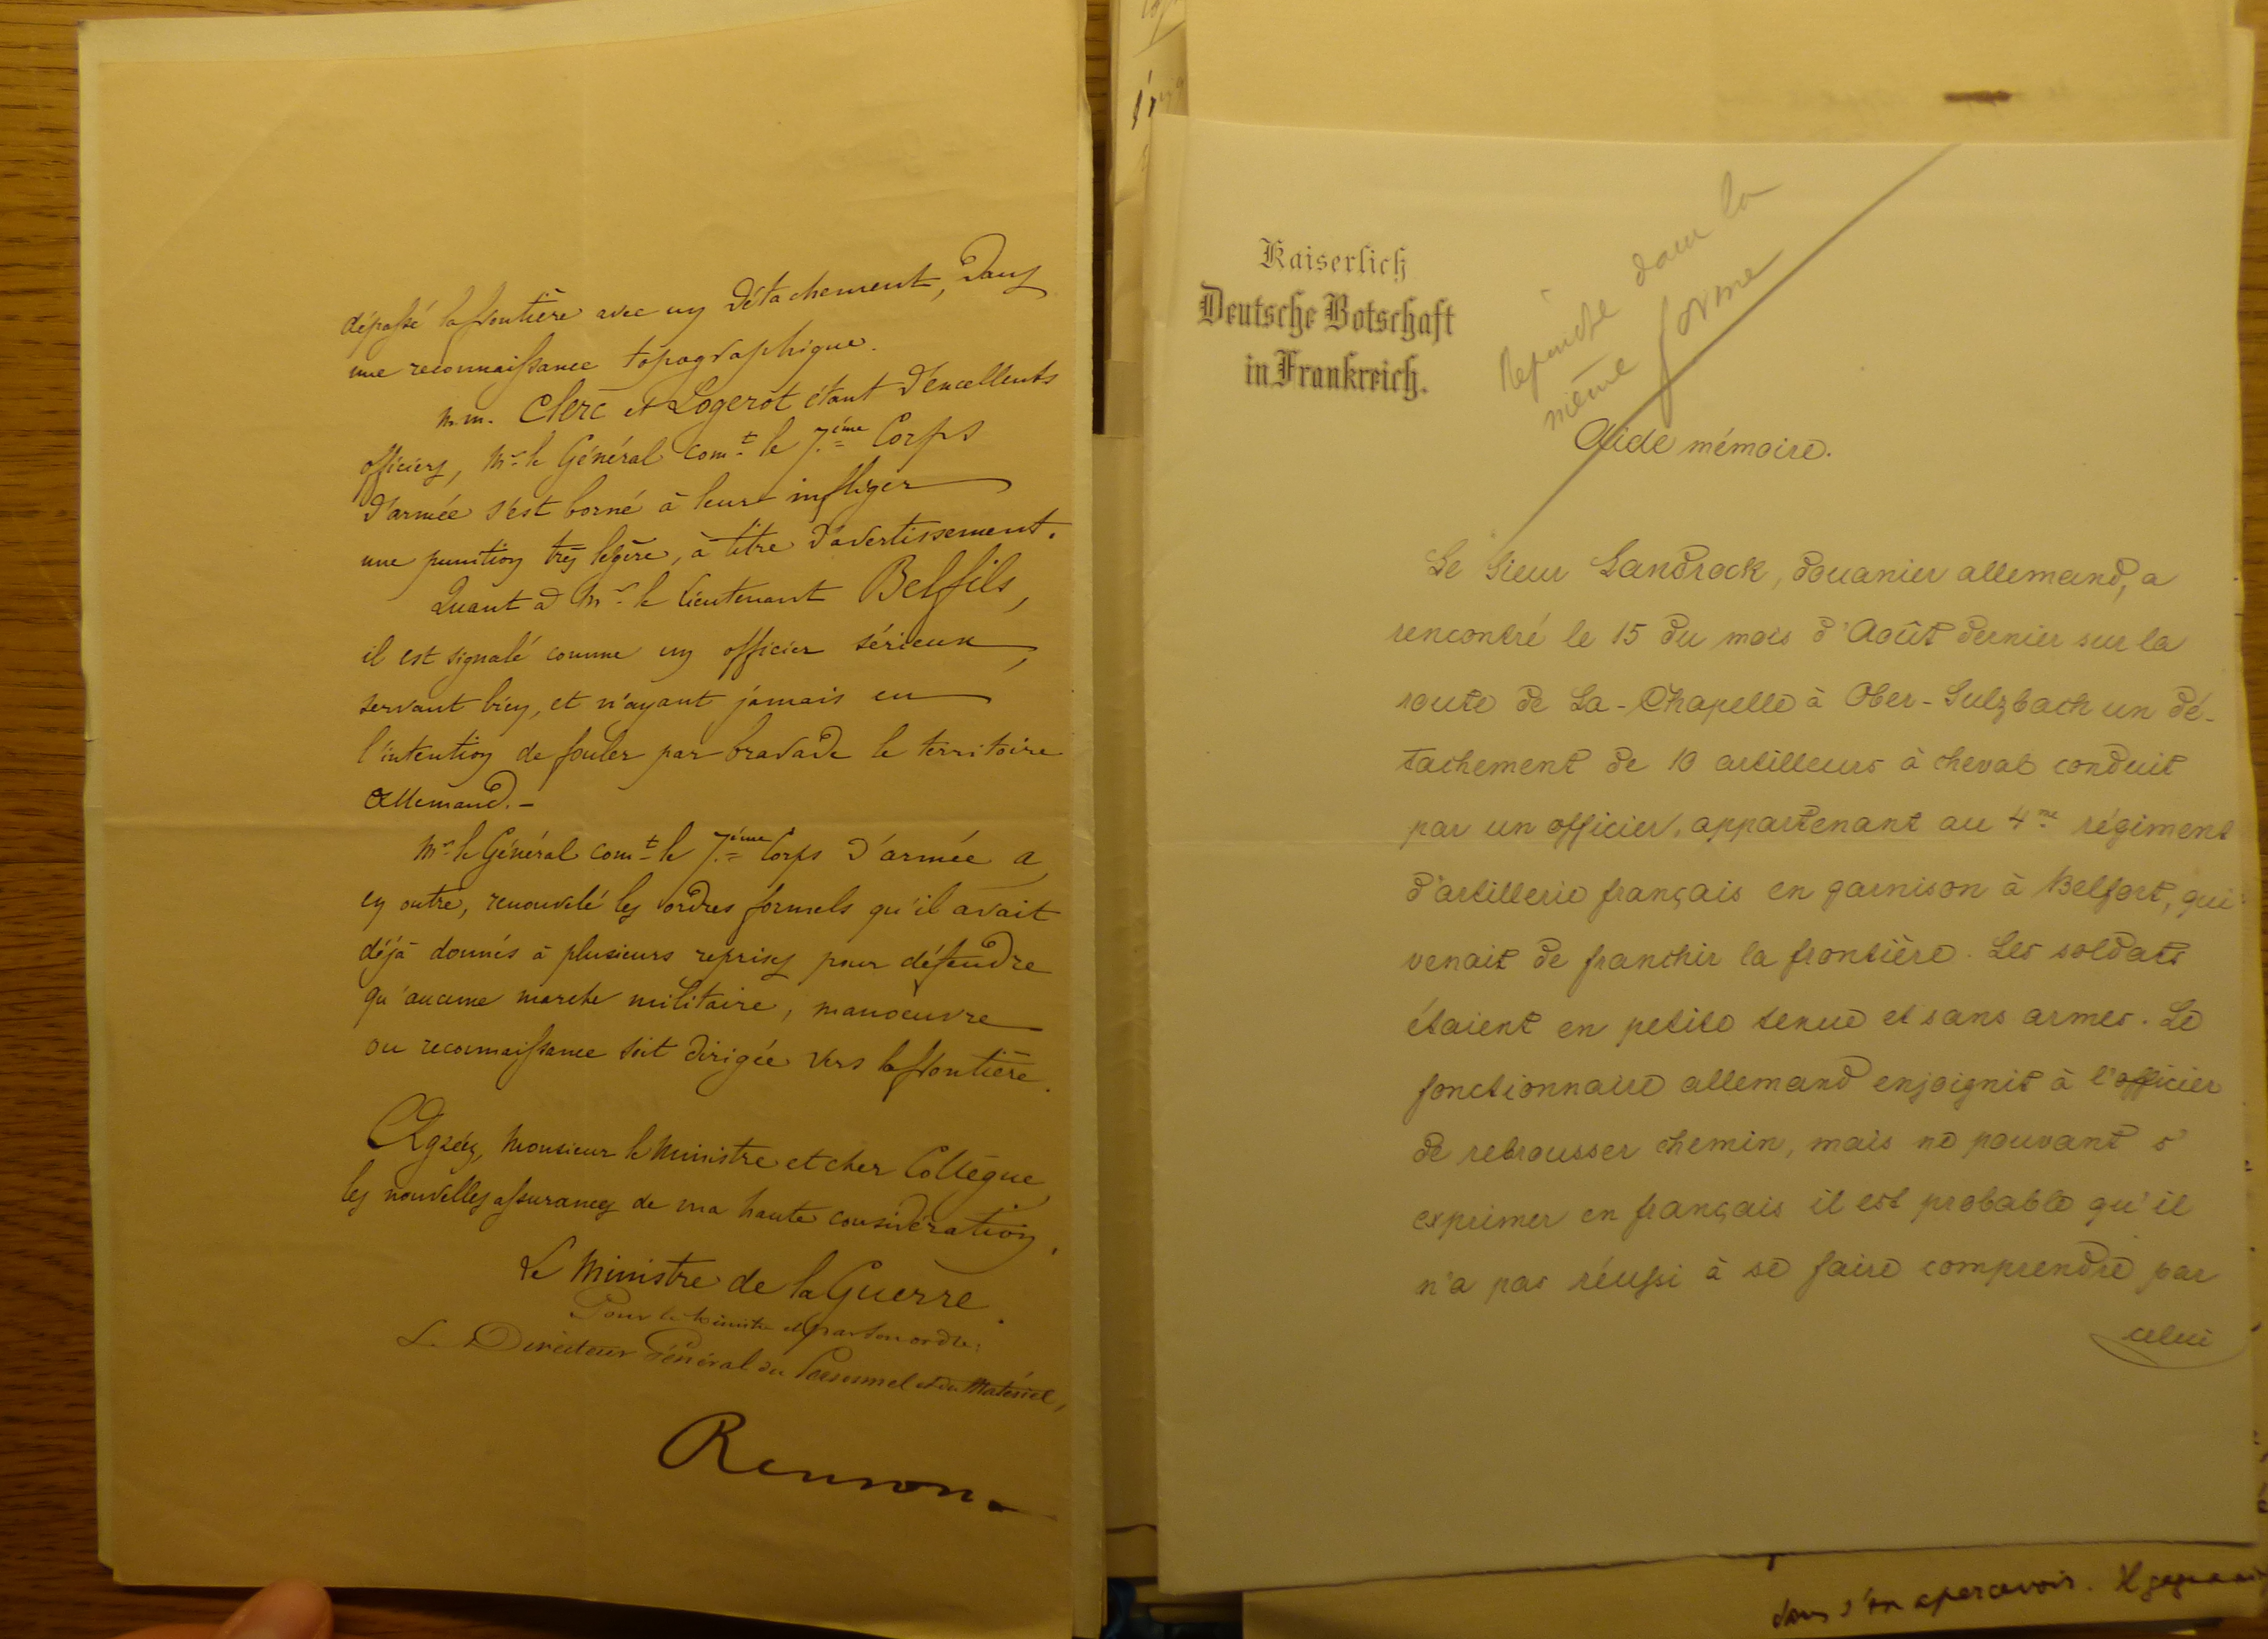 dépassé la frontière avec un détachement, dans
une reconnaissance topographique.
M.M. Clerc et Logerot étant d'excellents
officiers, Mr le Général comt le 7.ème Corps
d'armée s'est borné à leur infliger
une punition très légère, à titre d'avertissement.
Quant à Mr le Lieutenant Belfils,
il est signalé comme un officier sérieux,
servant bien, et n'ayant jamais eu
l'intention de fouler par bravade le territoire
Allemand.-
Mr le Général comt le 7.ème Corps d'armée a,
en outre, renouvelé les ordres formels qu'il avait
déjà donnés à plusieurs reprises pour défendre
qu'aucune marche militaire, manoeuvre
ou reconnaissance soit dirigée vers la frontière.
Agréez, Monsieur le Ministre et cher Collègue,
les nouvelles assurances de ma haute considération.
Le Ministre de la Guerre.
Pour le Ministre et par son ordre:
Le Directeur Général du Personnel et du Matériel,
Renson
Kaiserlich
Deutsche Botschaft
in Frankreich.
dans la
même forme
Aide mémoire.
Le Sieur Landrock, douanier allemand, a
rencontré le 15 du mois d'Août dernier sur la
route de La-Chapelle à Ober-Sulzbach un dé-
tachement de 10 artilleurs à cheval conduit
par un officier, appartenant au 4me régiment
d'artillerie français en garnison à Belfort, qui
venait de franchir la frontière. Les soldats
étaient en petite tenue et sans armes. Le
fonctionnaire allemand enjoignit à l'officier
de rebrousser chemin, mais ne pouvant s'
exprimer en français il est probable qu'il
n'a pas réussi à se faire comprendre par
celui
sans s'en apercevoir. Il